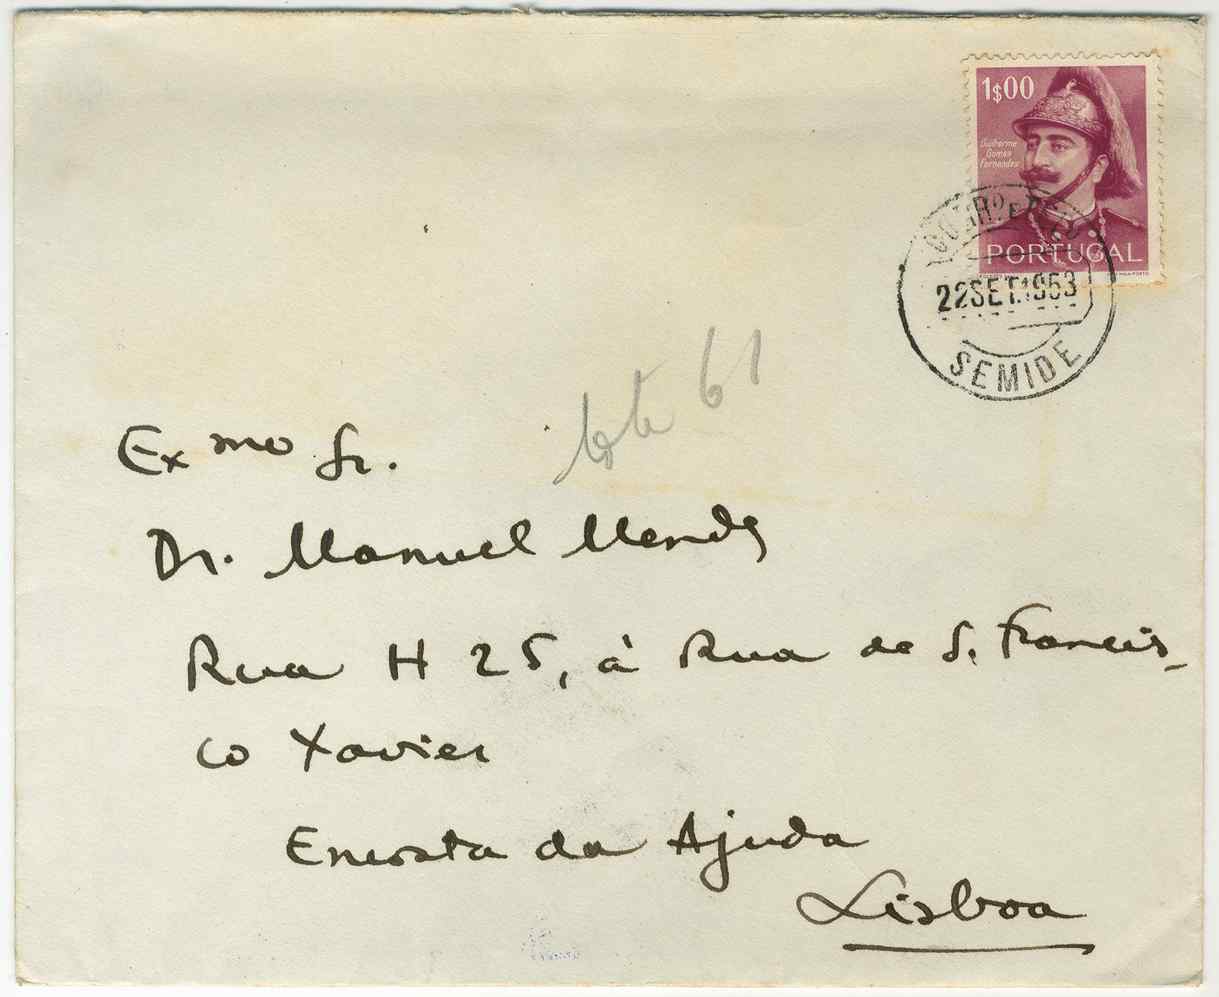 1$00
Guilherme
Gomes
Fernandes
PORTUGAL
22SET.1953
SEMIDE
61
Ex mo Sr.
Dr. Manuel Mendes
Rua H 25, à Rua de S. Francis-
co Xavier
Encosta da Ajuda
Lisboa